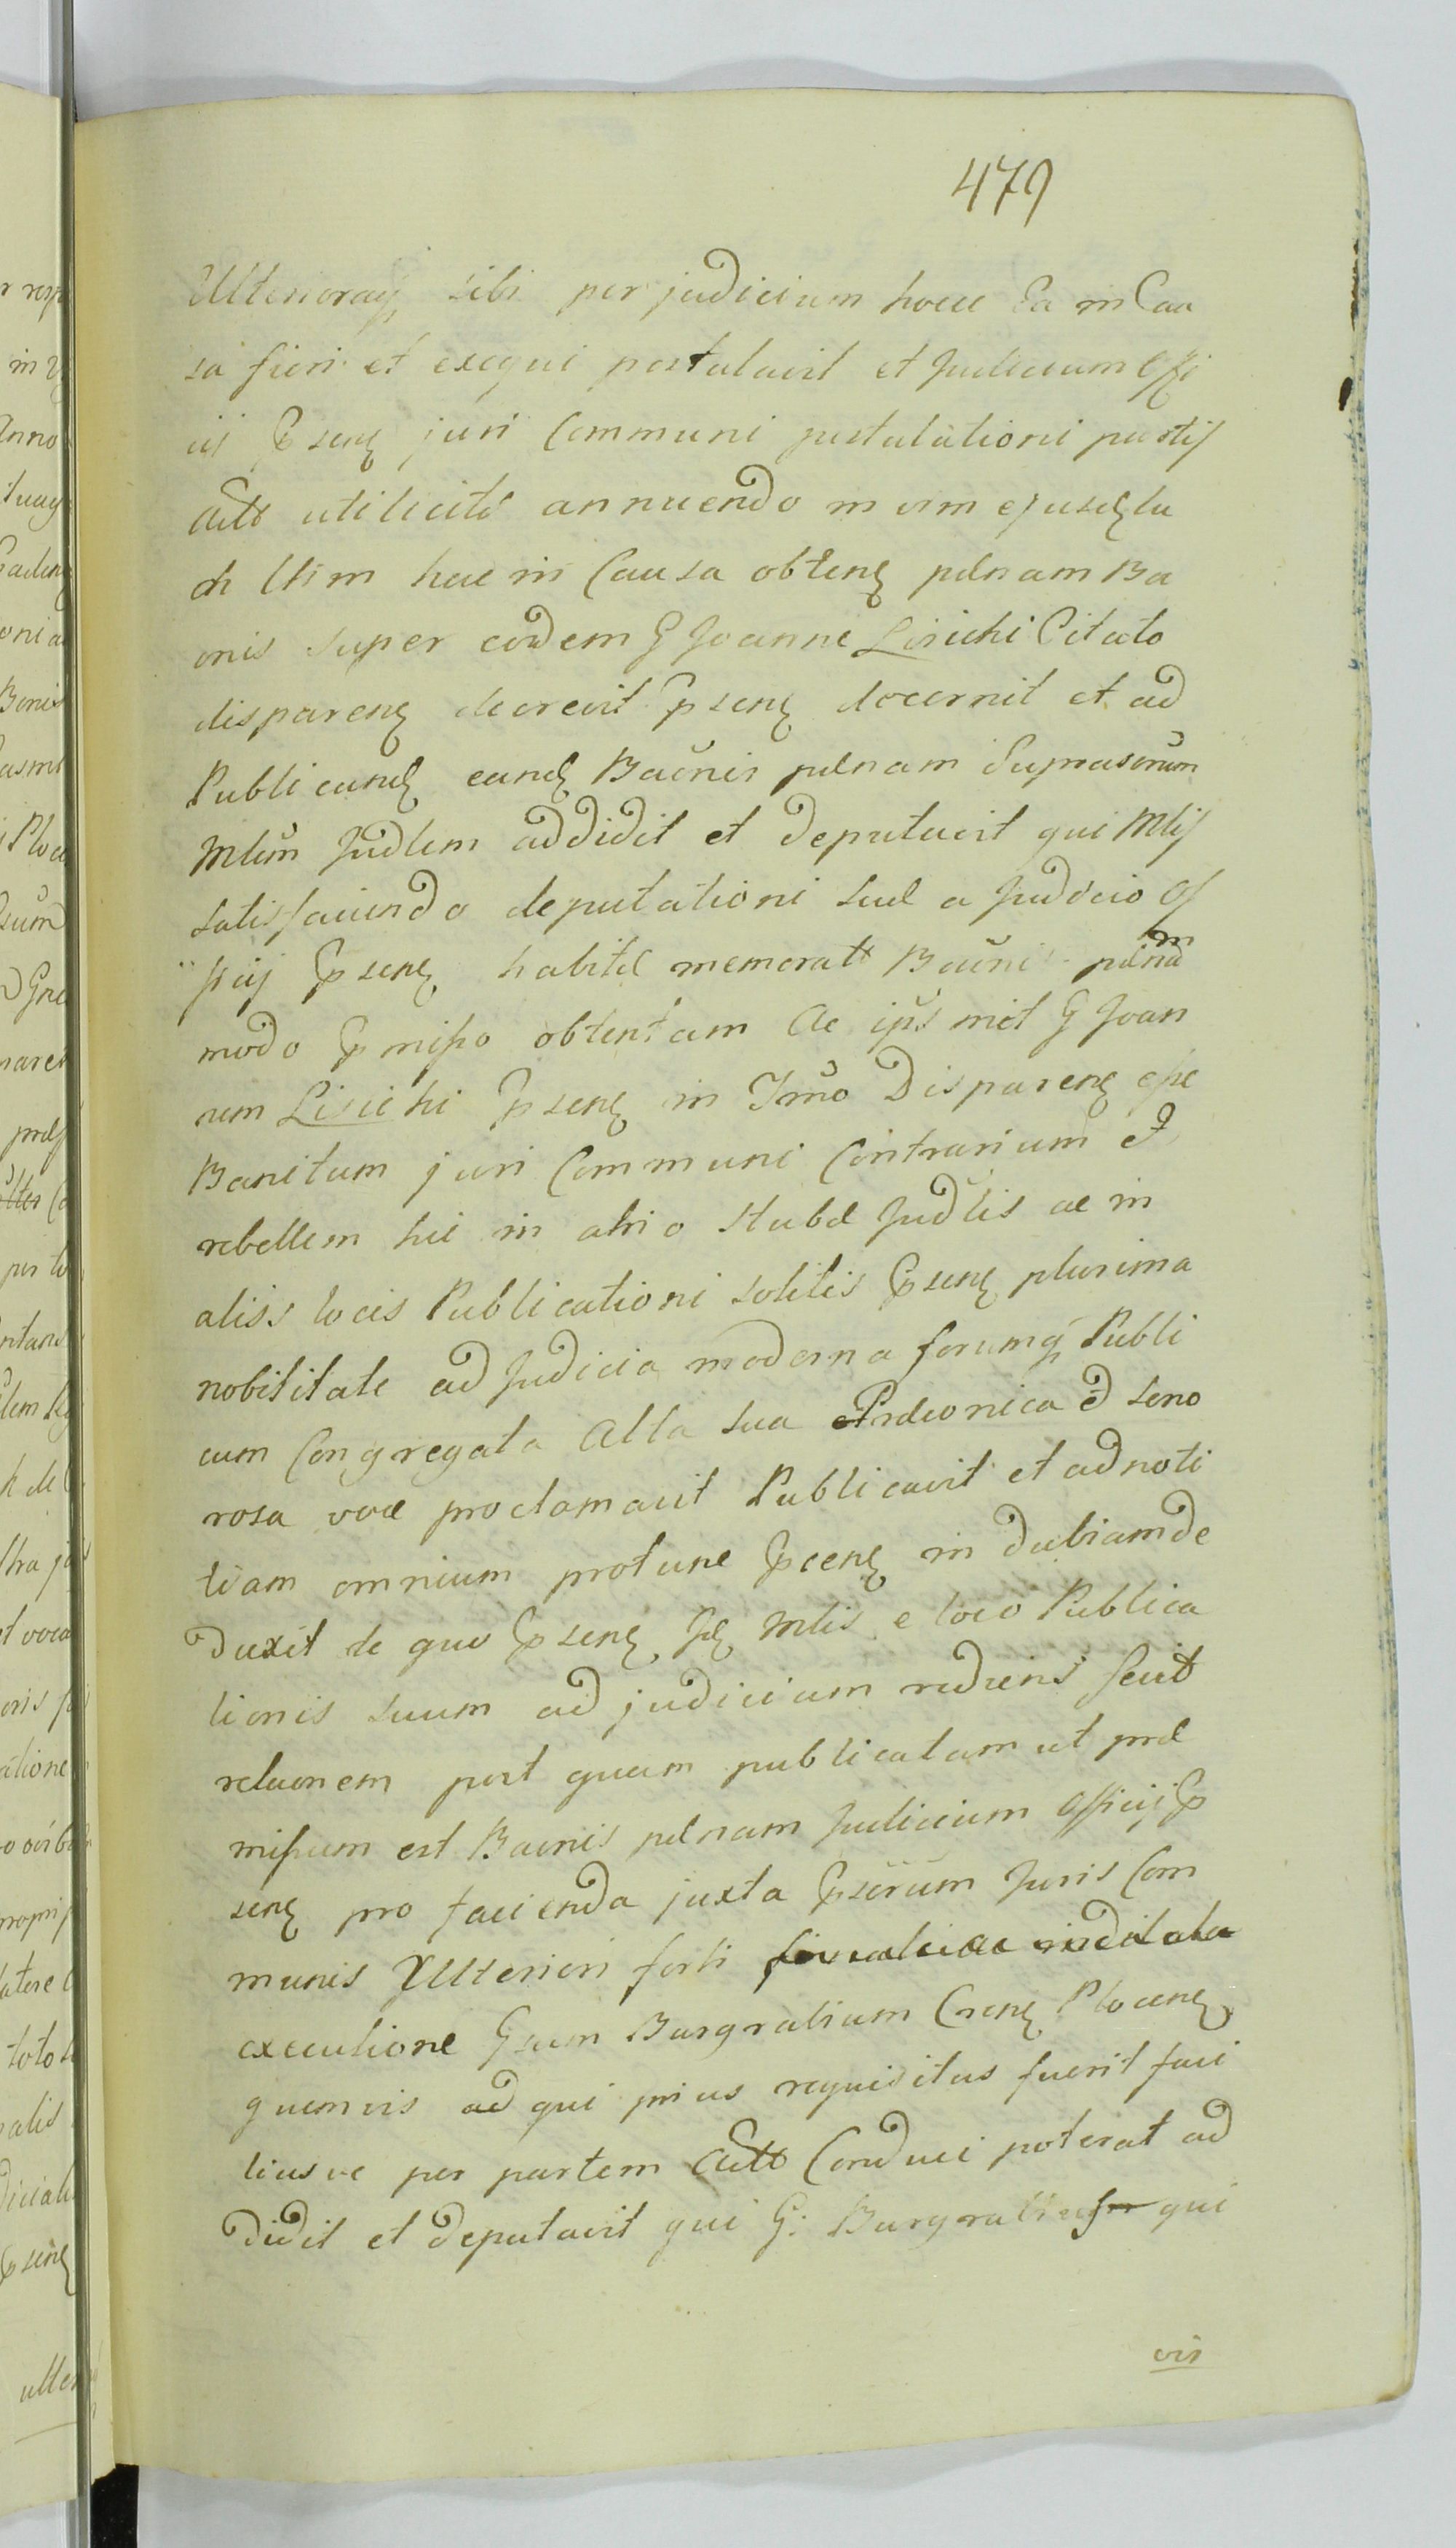 479
Ulterioraq sibi per judicium hocce Ea in Cau
sa fieri et exequi postulavit et Judicium Offi
cij psens juri Communi postulationi partis
Actt utilicite annuendo in vim ejusd lu
cri Utim hac in Causa obtent pdnam Ba
onis super eodem G Joanne Lisicki Citato
disparent decrevit psens decernit et ad
Publicand eand Baõnis pdnam Suprascrum
Mlem Judlem addidit et deputavit qui Mlis
satisfaciendo deputationi suæ a Judicio Of
ficij psent habitæ memoratt Baõnis pdnam
modo pmisso obtentam Ac ipsmet G Joan
nem Lisicki psent in Imo Disparent esse
Banitum juri Communi Contrarium et
rebellem hic in atrio Stubæ Judlis ac in
aliis locis Publicationi solitis psente plurima
nobilitate ad Judicia moderna forumq Publi
cum Congregata Alta sua Prdconica et sono
rosa voce proclamavit Publicavit et ad noti
tiam omnium protunc pcent in dubiam de
duxit de quo psens Jd Mlis e loco Publica
tionis suum ad judicium rediens fecit
relaonem post quam publicatam ut præ
missum est Baonis pdnam Judicium Officij p
sens pro facienda juxta pscrum Juris Com
munis Ulteriori forti
executione Gsum Burgrabium Crens Plocens
quemvis ad qui prius requisitus fuerit faci
liusve per partem Actt Conduci poterat ad
didit et deputavit qui G: Burgrabius qui
vis